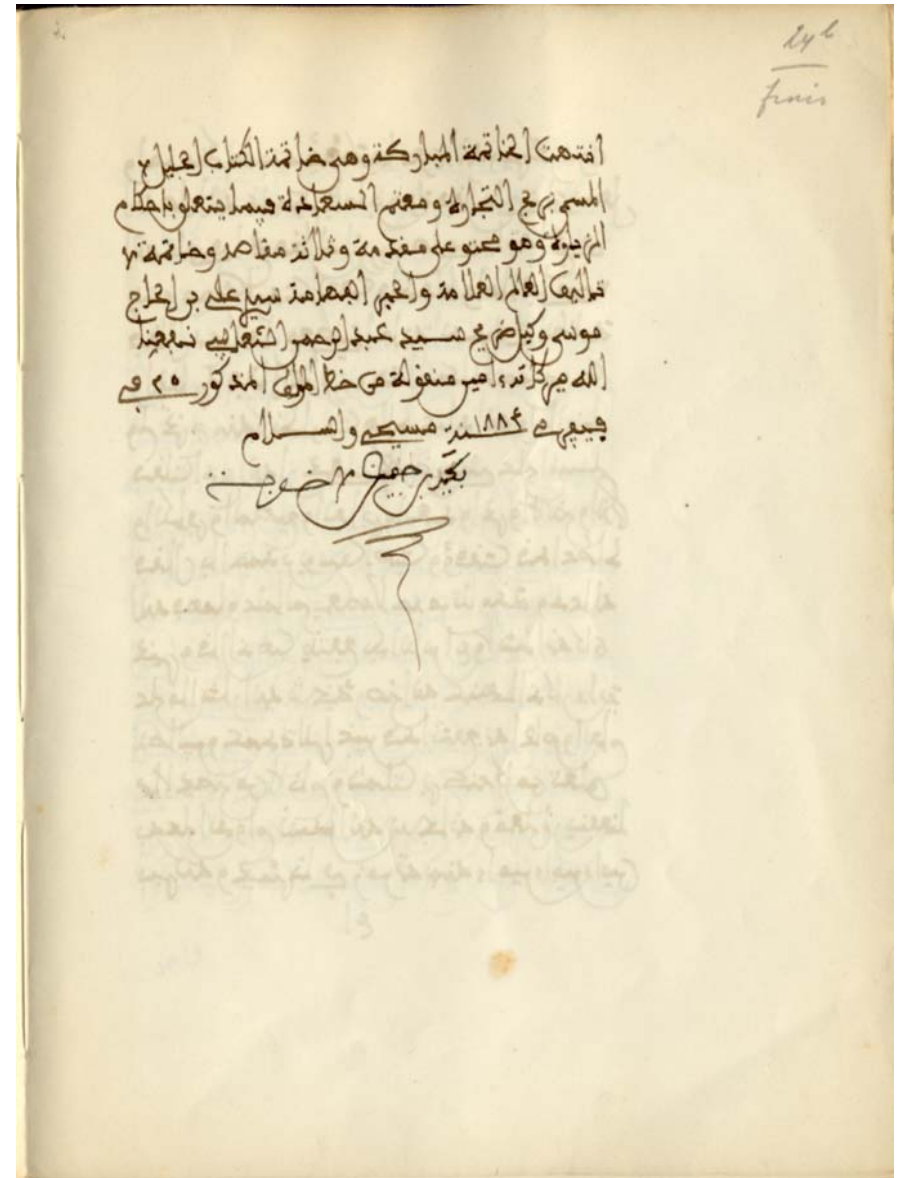 24b
finis
انتهت الخاتمة المباركة وهى خاتمة الكتاب الجليل
المسمى بربح التجارة ومغنم السعادة فيما يتعلق باحكام
الزيارة وهو محتو على مقدمة وثلاثة مقاصد وخاتمة
تاليف العالم العلامة والحبر الفهامة سيدي علي بن الحاج
موسى وكيل ضريح سيدي عبد الرحمن الثعالبي نفعنا
الله ببركاته ءامين منقولة من خط المولف المذكور ٢٥ في
فيفري سنة ١٨٨٤ مسيحي والسلام
بن خوجة